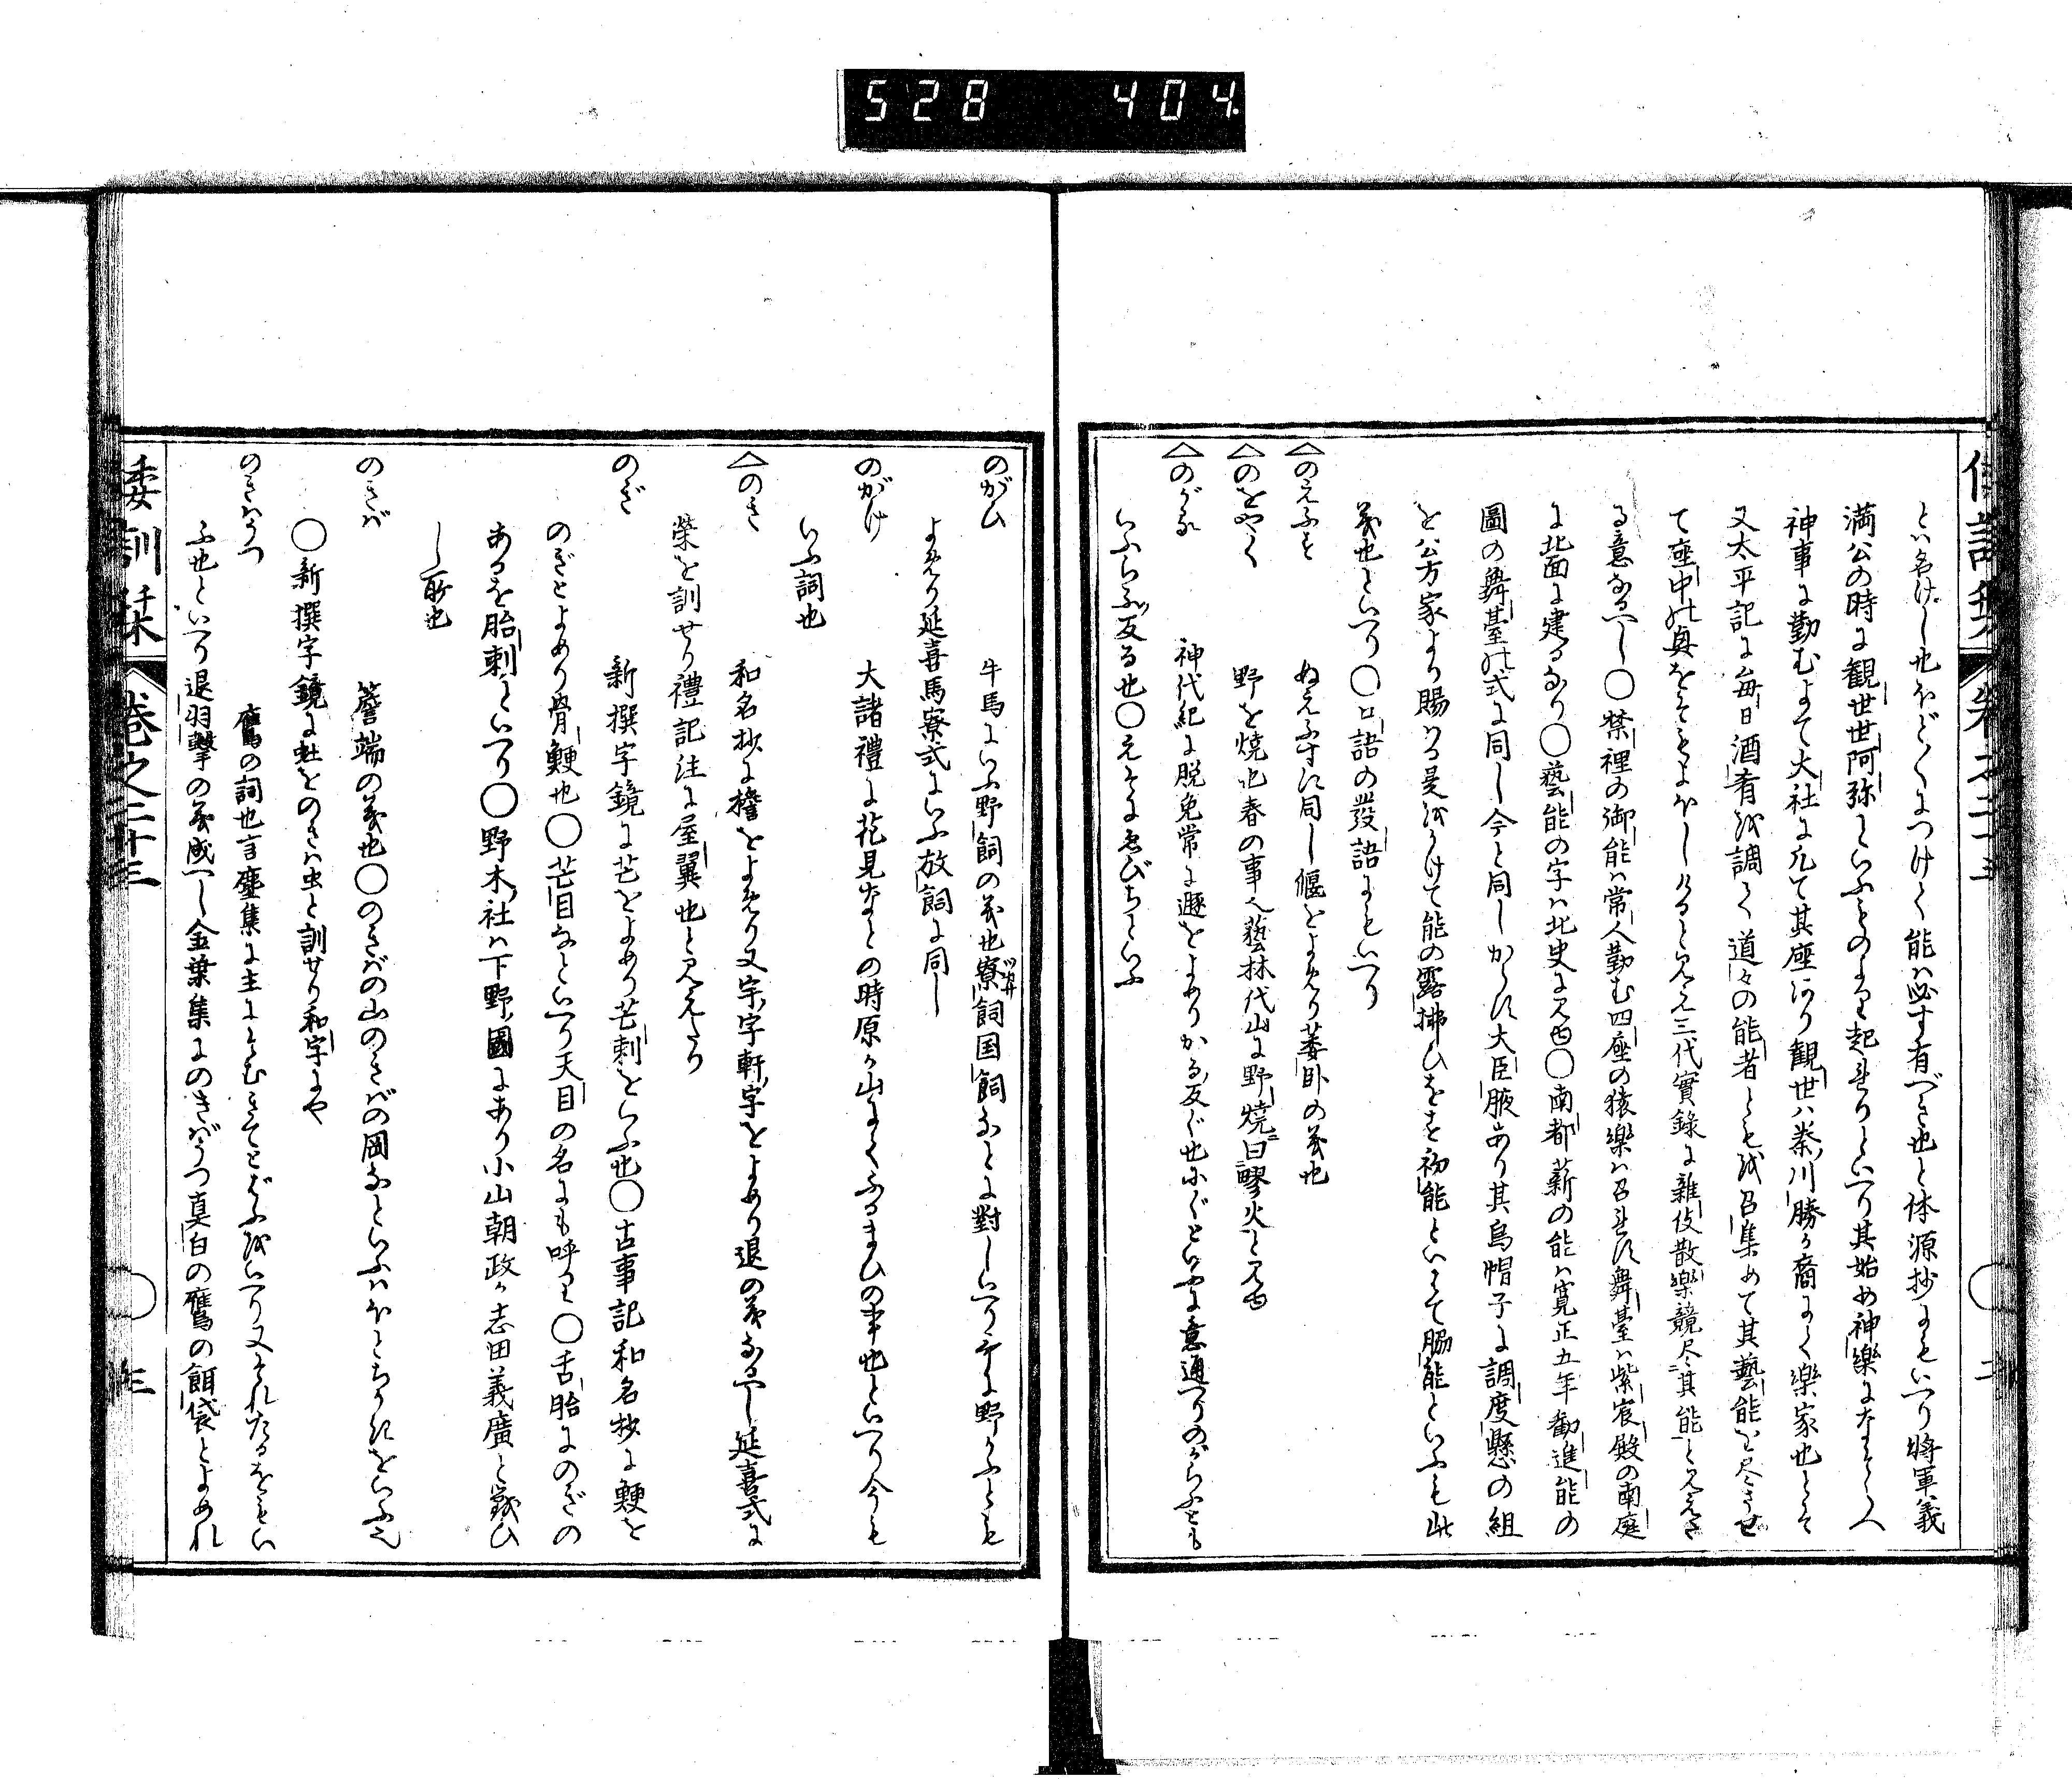 528 404
とハ名けし也ほど〳〵につけく能ハ必す有べき也と体源抄にもいへり将軍義
満公の時に観世世阿弥といふもの より起れりといへり其始め神楽になそらへ
神事に勤むよて大社に凡て其座あり観世ハ秦川勝か裔にて楽家也とそ
又太平記に毎日酒肴を調て道々の能者とも を召集めて其藝能を尽させ
て座中の興をそもよほしけると見え三代實錄に雜伎散樂競尽其能と見えた
る意なるへし〇禁裡の御能ハ常人勤む四座の猿樂ハ召れす舞臺ハ紫宸殿の南庭
に北面に建るなり〇藝能の字ハ北史に見ゆ〇南都薪の能ハ寛正五年勧進能の
圖の舞臺の式に同し今と同しからす大臣脇あり其烏帽子に調度懸の組
を公方家より賜ハる是をかけて能の露拂ひをす初能といひて脇能といふも此
義也といへり〇口語の發語にもいへり
△のえふす ぬえふすに同し偃をよめり萎臥の義也
△のをやく 野を焼也春の事也藝林代山に野焼曰謬火と見ゆ
△のがる 神代紀に脱免常に遯をよめりかる反ぐ也にぐといふに意通へりのがらふとも
いふらふ反る也〇えそにゑびちといふ
のがひ 牛馬にいふ野飼の義也寮飼国飼なとに對しいへり哥に野かふとも
よめり延喜馬寮式にいふ放飼に同し
のがけ 大諸禮に花見なとの時原か山にてふるまひの事也といへり今も
いふ詞也
△のき 和名抄に檐をよめり又宇字軒字をよめり退の義なるへし延喜式に
榮を訓せり禮記注に屋翼也と見えたり
のぎ 新撰字鏡に芒をよめり芒刺をいふ也〇古事記和名抄に鯁を
のぎとよめり骨鯁也〇芒目なといへり天目の名にも呼り〇舌胎にのぎの
あるを胎刺といへり〇野木社ハ下野國にあり小山朝政か志田義廣と戦ひ
し所也
のきば 簷端の義也〇のきばの山のきばの岡なといふハほとちかきをいふ也
〇新撰字鏡に虵をのきハ虫と訓せり和字にや
のきハうつ 鷹の詞也言塵集に主にそむきてとびふをいへり又それたるをもい
ふ也といへり退羽擊の義成へし金葉集にのきばうつ真白の鷹の餌袋とよめれ
倭訓栞 巻之二十三 二
倭訓栞 巻之二十三 三